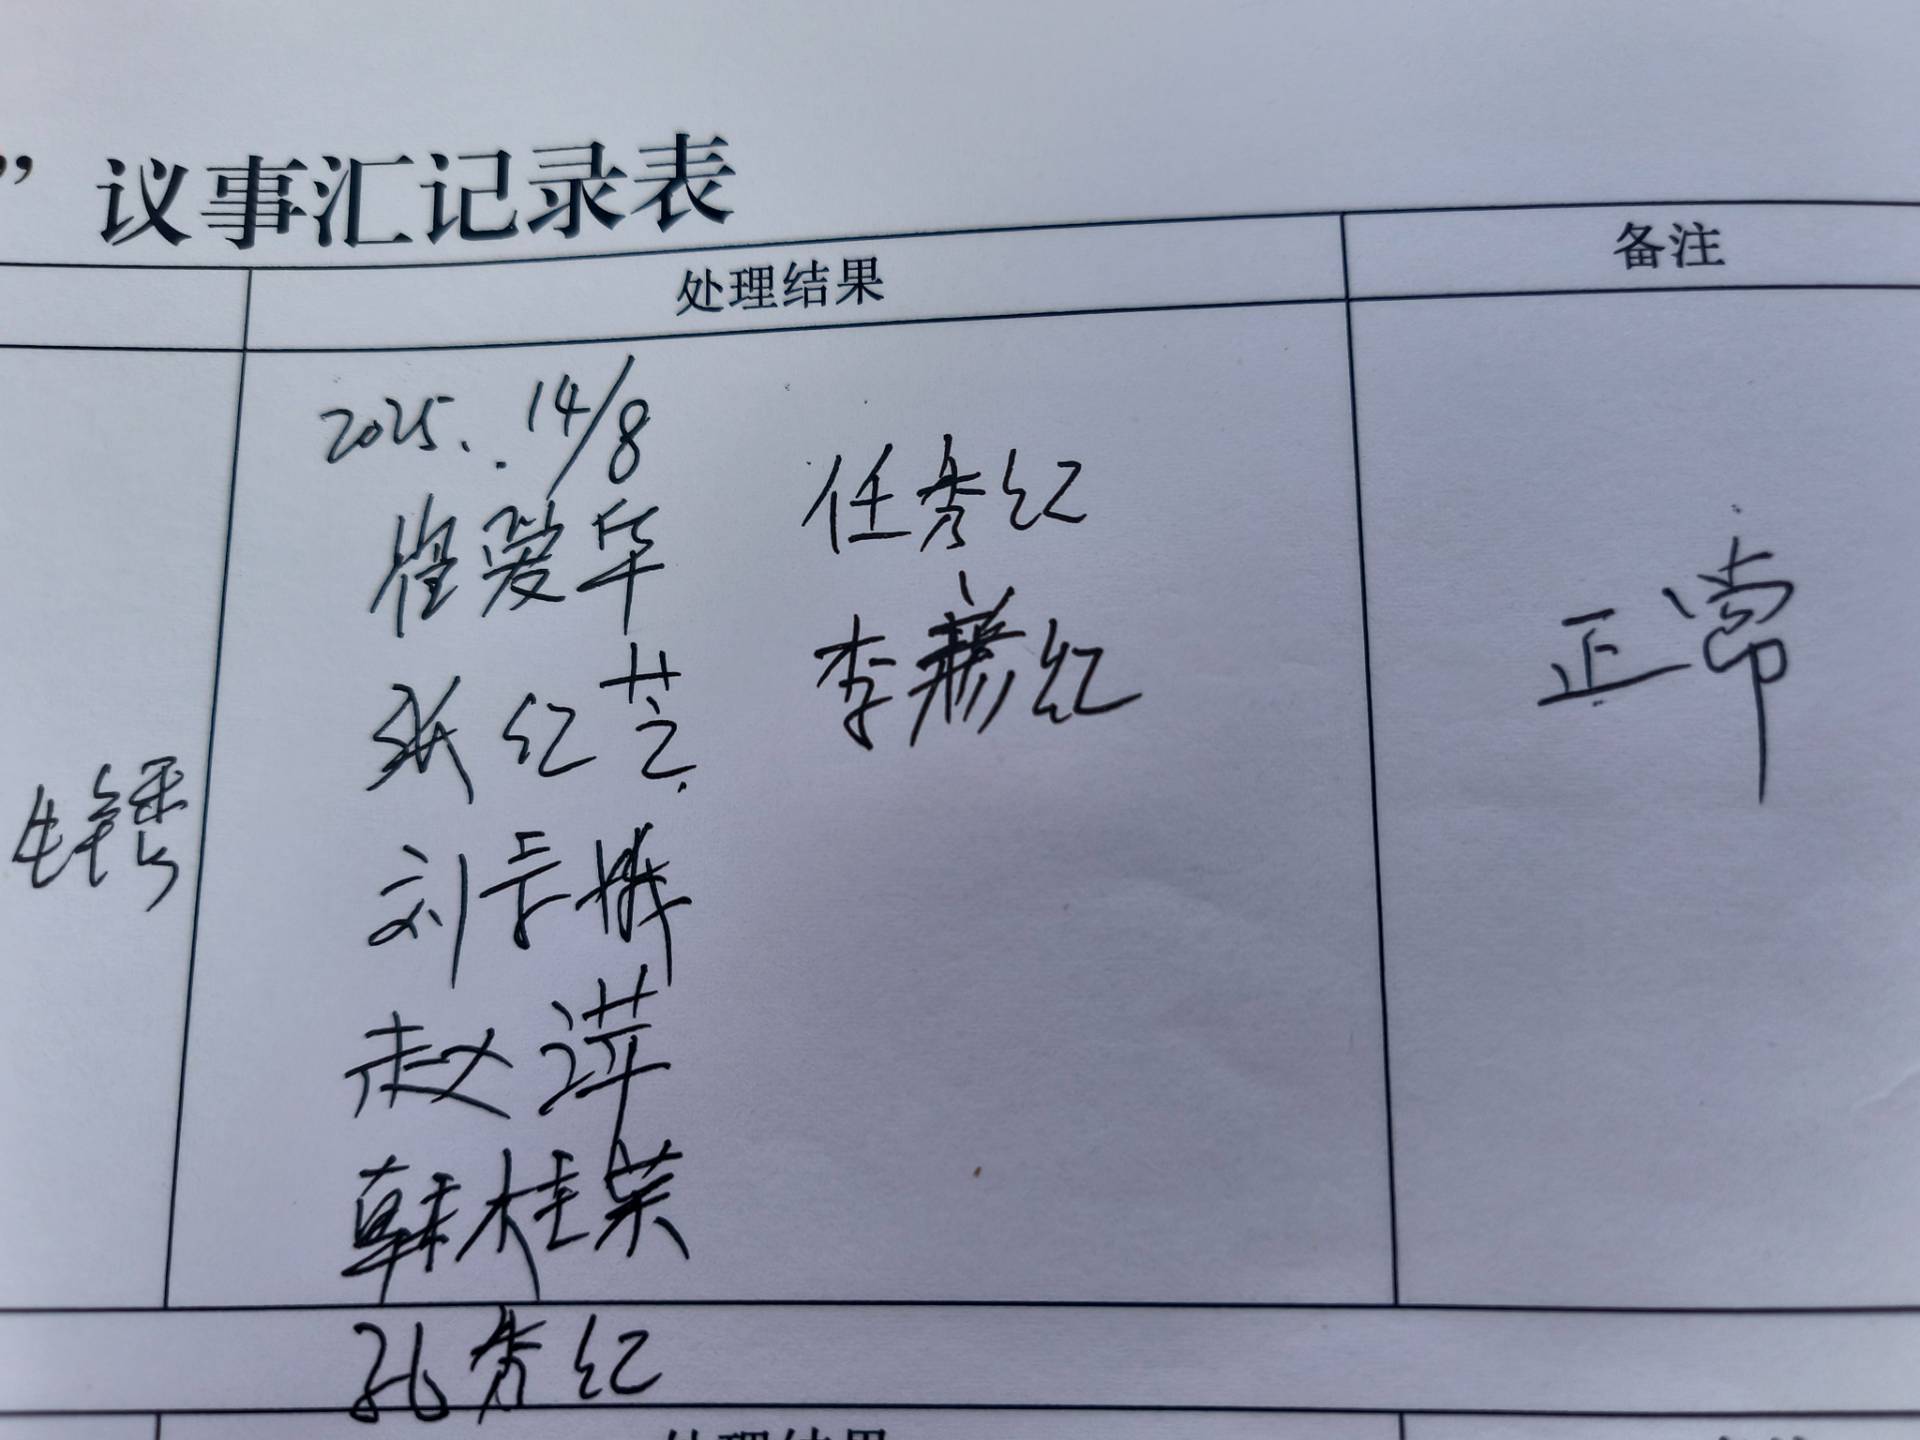 ”议事汇记录表
处理结果 备注
2025. 14/8
崔爱华 任秀红
张红芝 李 红
刘长娥
赵萍
韩桂荣
孔秀红
正常
处理结果